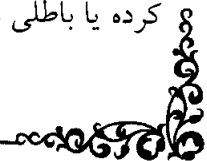 کرده یا باطلی